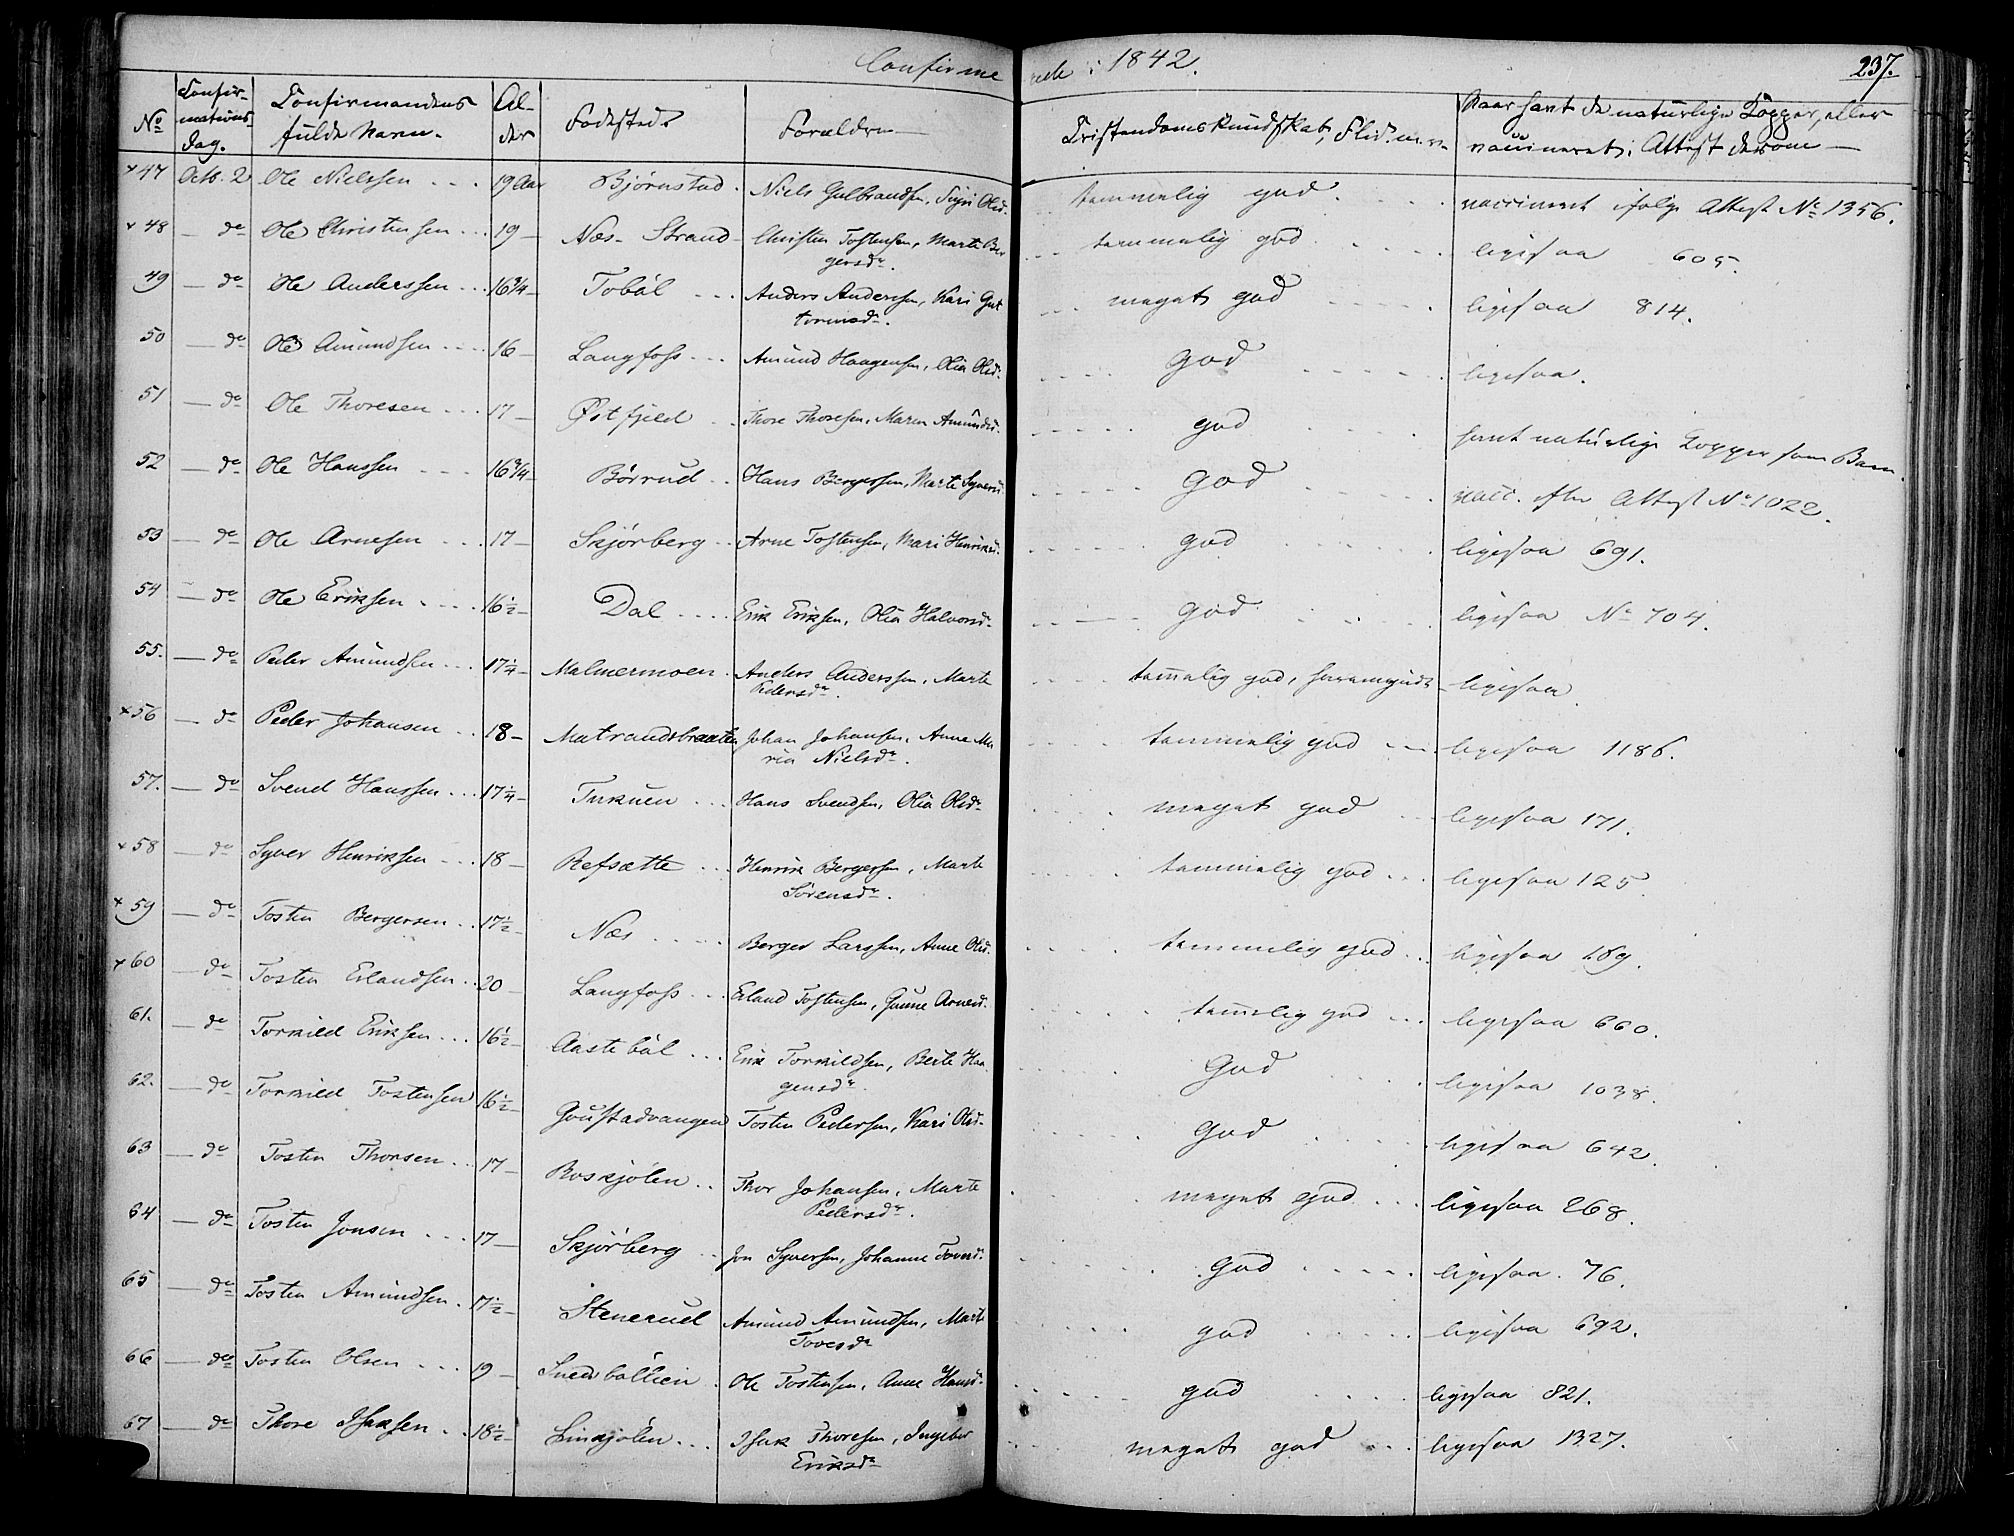 Confirmerede i 1842. 237.
No Confirmations Dag. Confirmandens fulde Navn. Alder Fødested. Forældre Cristendomskundskab, Flid. m. m. Naar havt de naturlige Kopper, eller vaccineret; Attest derom
+47 Octb. 2 Ole Nielssen 19 Aar Bjørnstad. Niels Gulbrandsen, Sigri Olsd. temmelig god vaccineret ifølge Attest No 1356.
+48 — do Ole Christensen 19 — Næs-Strand Christen Tostensen, Marte Ber
gersdr. temmelig god ligesaa 605.
49 — do Ole Anderssen 16 3/4 — Tobøl Anders Andersen, Kari Gut
tormsdr. meget god ligesaa 814.
50 — do Ole Amundsen 16 — Langfoss Amund Haagensen, Olia Olsd. god ligesaa.
51 — do Ole Thoresen 17 — Østfjeld Thore Thoresen, Maren Amundsd. god havt naturlige Kopper som Barn
52 — do Ole Hanssen 16 3/4 — Børrud Hans Bergersen, Marte Syversd. god vacc. efter Attest No 1022.
53 — do Ole Arnesen 17 — Skjørberg Arne Tostensen, Mari Henriksd. god ligesaa 691.
54 — do Ole Eriksen 16 1/2 — Dal Erik Eriksen, Olia Halvorsd. god ligesaa No 704.
55. — do Peder Amundsen 17 1/4 — Malmermoen Anders Anderssen, Marte
Pedersdr. temelig god, ligesaa
+56 — do Peder Johansen 18 — Matrandsbraaten Johan Johansen, Anne Ma
ria Nielsdr. temmelig god ligesaa 1186.
57. — do Svend Hanssen 17 1/4 — Hans Svendsen, Olia Olsdr. meget god ligesaa 171.
+58 — do Syver Henriksen 18 — Refsætte Henrik Bergersen, Marte
Sørensdr. temmelig god ligesaa 125.
+59 — do Tosten Bergersen 17 1/2 — Næs Berger Larssen, Anne Olsd. temmelig god ligesaa 189.
+60 — do Tosten Erlandsen 20 — Langfoss Erland Tostensen, Gunne Arnesd. temelig god ligesaa 660.
61. — do Tormild Eriksen 16 1/2 — Aastebøl Erik Tormildsen, Berte Haa
gensdr. God ligesaa 1038.
62. — do Tormild Tostensen 16 1/2 — Goustadvangen Tosten Pedersen, Kari Olsd. God ligesaa 642.
63 — do Tosten Thorsen 17 — Roskjølen Thor Johansen, Marte
Pedersdr. meget god ligesaa 268.
64 — do Tosten Jonsen 17 — Skjørberg Jon Syversen, Johanne Tovesd. God ligesaa. 76.
65 — do Tosten Amundsen 17 1/2 — Stenerud Amund Amundsen, Marte
Tovesdr god ligesaa 692.
66 — do Tosten Olsen 19 — Snedbøllien Ole Tostensen, Anne Hansd. god ligesaa 821.
67 — do Thore Isaksen 18 1/2 — Linkjølen Isak Thoresen, Ingebor
Eriksdr meget god ligesaa 1327.